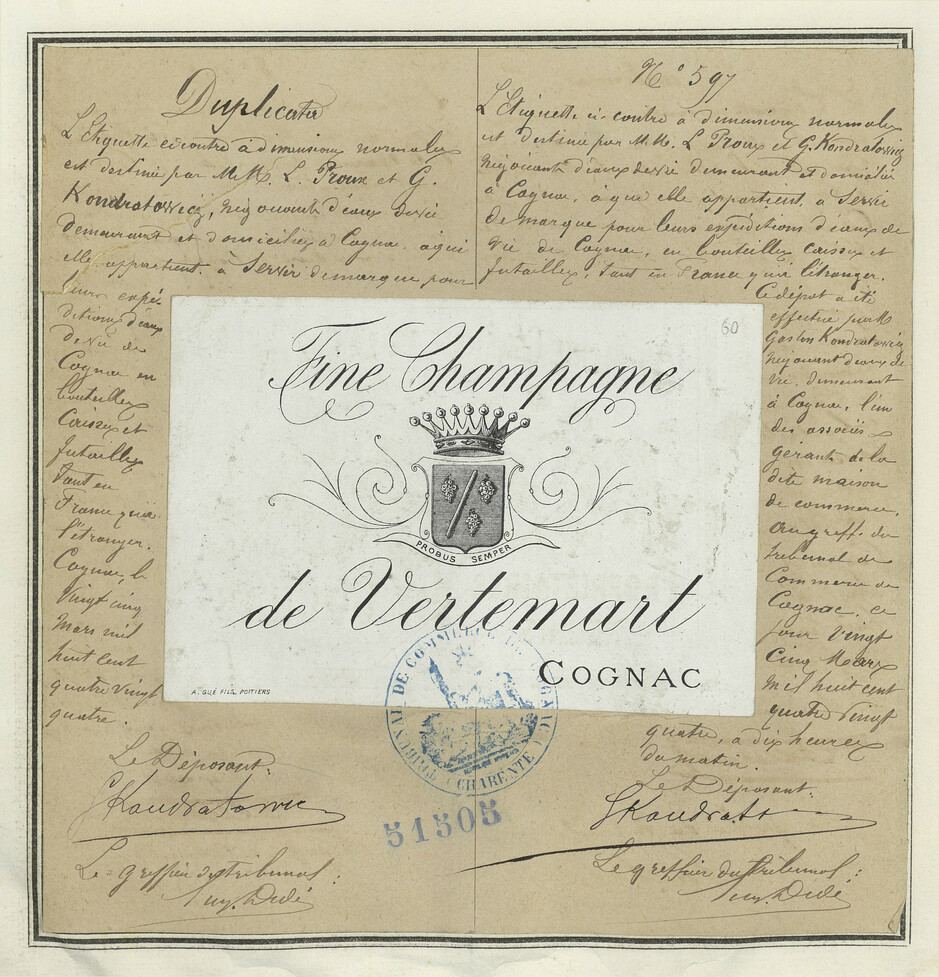 Duplicata
L'Etiquette ci contre à dimensions normales
est destinée par M.M. L. Proux et G.
Kondratowicz, négociants d'eaux de vie
demeurant et domiciliés à Cognac, à qui
elle appartient, à servir de marque pour
leurs expé
ditions d'eaux
de vie de
Cognac en
bouteilles
Caisses et
futailles
tant en
France qu'à
l'étranger.
Cognac, le
vingt cinq
Mars mil
huit cent
quatre vingt
quatre.
Le Déposant:
GKondratowicz
Le greffier du tribunal:
N° 597
L'Etiquette ci-contre à dimensions normales
est destinée par M.M. L Proux et G. Kondratowicz
négociants d'eaux de vie demeurant et domiciliés
à Cognac, à qui elle appartient, à Servir
de marque pour leurs expéditions d'eaux de
vie de Cognac, en bouteilles caisses et
futailles, tant en France qu'à l'étranger.
Ce dépôt a été
effectué par M
Gaston Kondratowicz
négociant d'eaux de
vie, demeurant
à Cognac, l'un
des associés
gérants de la
dite maison
de commerce,
au greffe du
tribunal de
Commerce de
Cognac, ce
jour vingt
Cinq Mars
mil huit cent
quatre vingt
quatre, à dix heures
du matin.
Le Déposant:
Le greffier du tribunal:
60
Fine Champagne
PROBUS SEMPER
de Vertemart
COGNAC
A. GUÉ FILS, POITIERS
TRIBUNAL DE COMMERCE DE COGNAC (CHARENTE)
51505